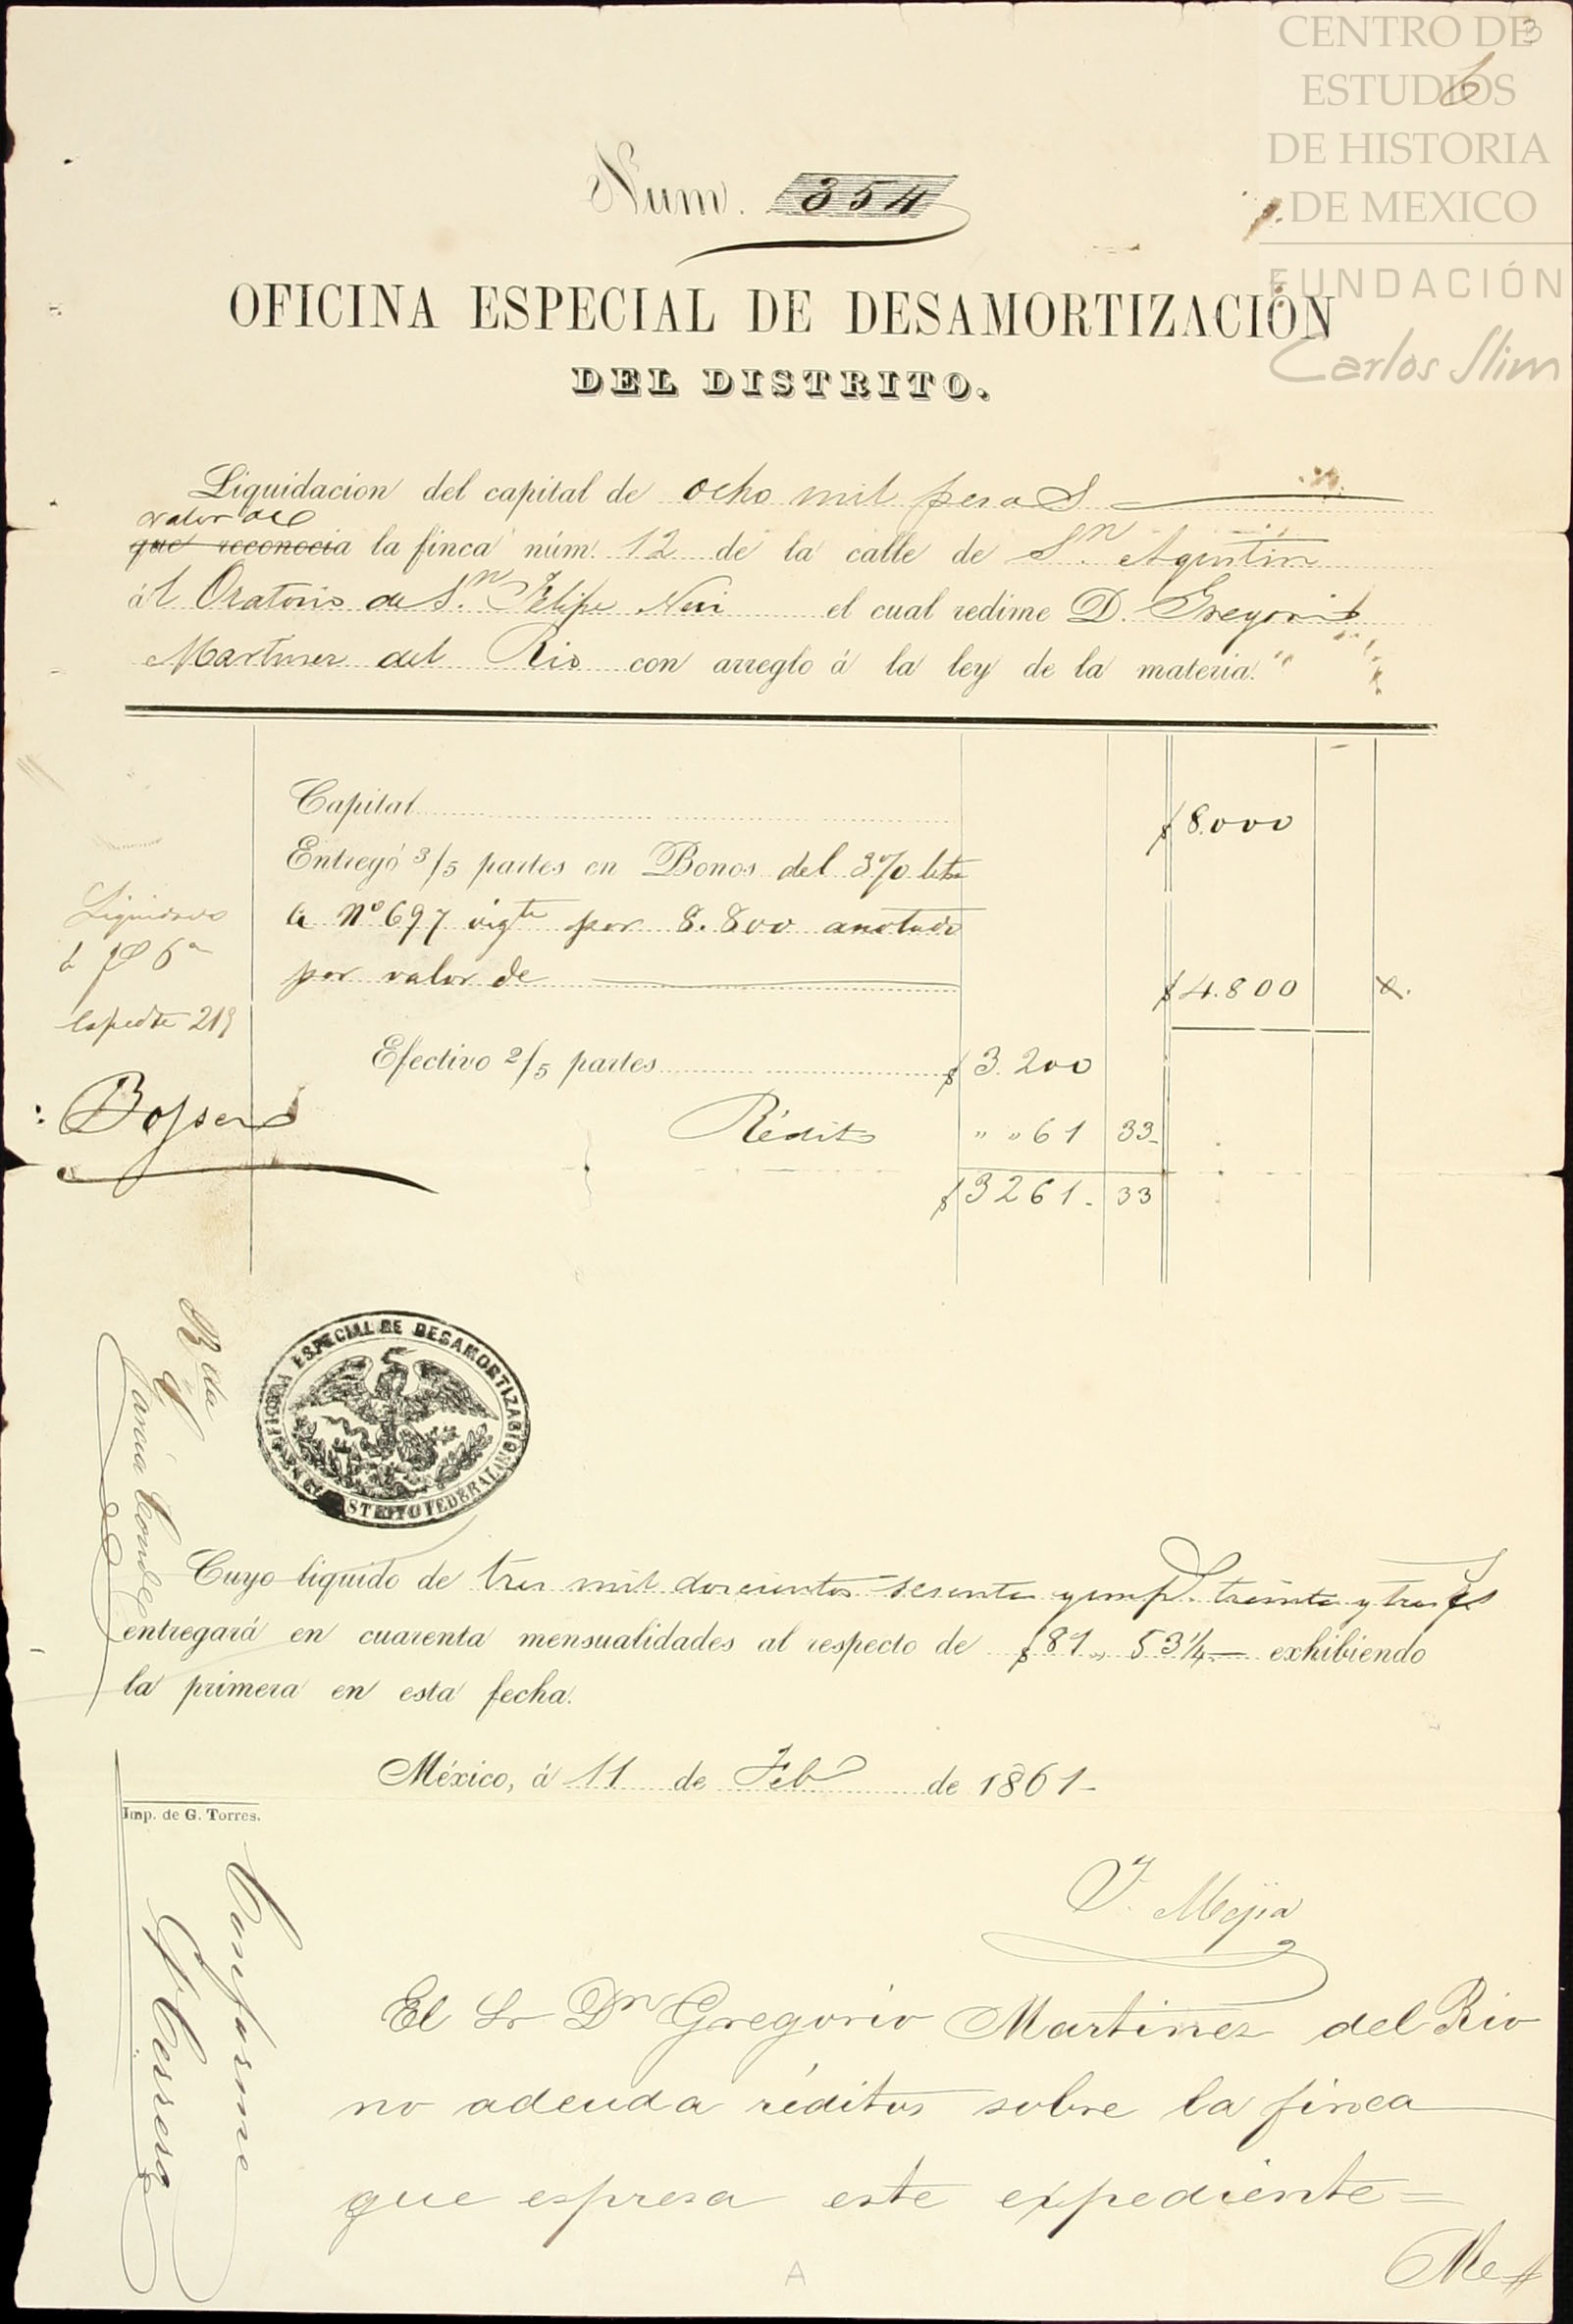 CENTRO DE
ESTUDIOS
DE HISTORIA
DE MEXICO
FUNDACIÓN
Carlos Slim
3
6
Num. 354
OFICINA ESPECIAL DE DESAMORTIZACIÓN
DEL DISTRITO.
Liquidacion del capital de ocho mil pesos
valor de
que reconocia la finca núm. 12 de la calle de Sn. Agustin
ál Oratorio de Sn. Felipe Neri el cual redime D. Gregorio
Martinez del Rio con arreglo á la ley de la materia.
Capital $8.000
Entregó 3/5 partes en Bonos del 3% letra
A Nº 697 vigte por 8.800 anotado
por valor de $4.800
Liquidado
á f 6a
Espedte 219
Efectivo 2/5 partes $3.200
Rédito " " 61 33
$3261. 33
OFICINA ESPECIAL DE DESAMORTIZACION
DISTRITO FEDERAL
Rda
Garcia Conde
Cuyo liquido de tres mil doscientos sesenta y un ps. treinta y tres cs
entregará en cuarenta mensualidades al respecto de $81,, 53 1/4 exhibiendo
la primera en esta fecha.
México, á 11 de Febo de 1861
Imp. de G. Torres.
Conforme
Y. Mejia
El Sr Dn Gregorio Martinez del Rio
no adeuda réditos sobre la finca
que espresa este expediente=
Me
A